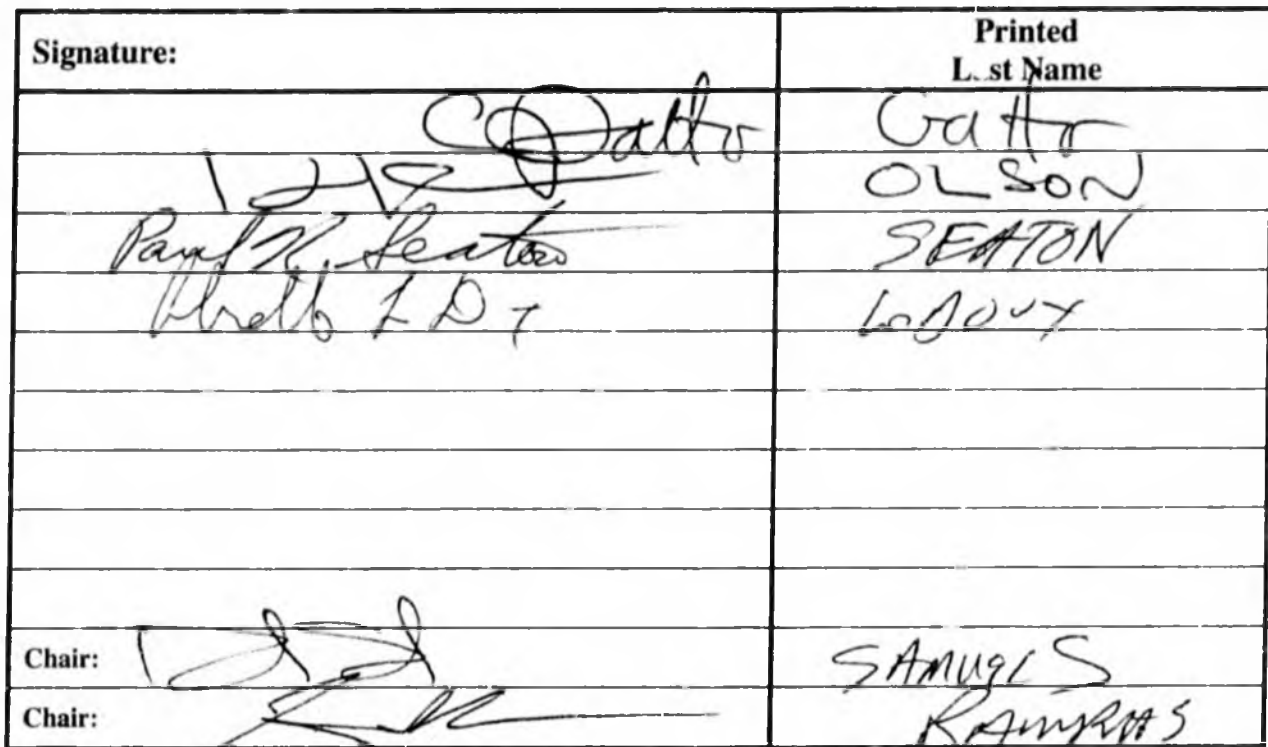 Signature: Printed
L. st Name
Gatto Gatto
OLSON
Paul K. Seaton SEATON
LeDoux
Chair: SAMUELS
Chair: RAMRAS